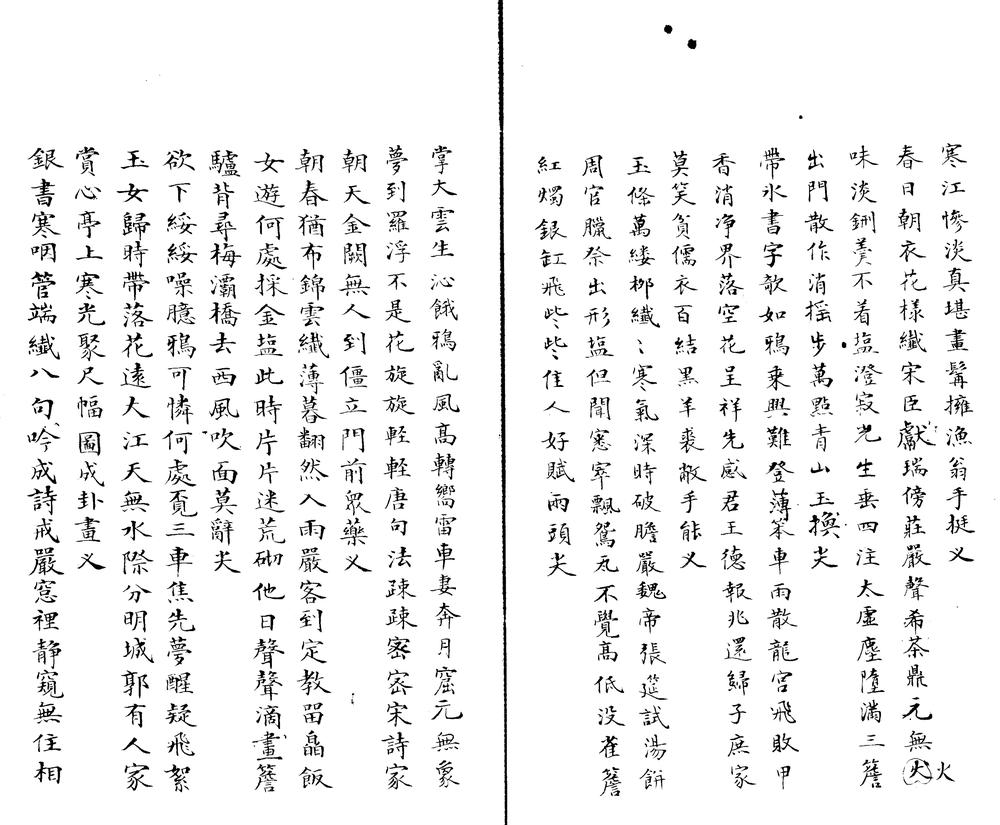 寒江慘淡真堪畫髯擁漁翁手挺乂
春日朝衣花樣纖宋臣獻瑞傍莊嚴聲希茶鼎元無火
味淡鉶羹不着塩澄寂光生垂四注太虛塵墮滿三簷
出門散作消摇步萬點青山玉換尖
帶氷書字欹如鴉乗興難登薄笨車雨散龍宮飛敗甲
香消净界落空花呈祥先感君王德報兆還歸子庶家
莫笑貧儒衣百結黑羊裘敝手能乂
玉條萬縷栁纖〻寒氣深時破膽嚴魏帝張筵試湯餅
周官臘祭出形塩但聞窓窣飄鴛瓦不覺髙低没雀簷
紅燭銀缸飛些些佳人好賦兩頭尖
掌大雲生沁餓鴉亂風髙轉嚮雷車妻奔月窟元無象
夢到羅浮不是花旋旋輕輕唐句法疎疎密密宋詩家
朝天金闕無人到僵立門前衆藥乂
朝春猶布錦雲纖薄暮翻然入雨嚴客到定教留皛飯
女遊何處採金塩此時片片迷荒砌他日聲聲滴畫簷
驢背尋梅灞橋去西風吹面莫辭尖
欲下綏綏噪臆鴉可憐何處覔三車焦先夢醒疑飛絮
玉女歸時帶落花遠大江天無水際分明城郭有人家
賞心亭上寒光聚尺幅圖成卦畫乂
銀書寒咽管端纖八句吟成詩戒嚴窓裡静窺無住相